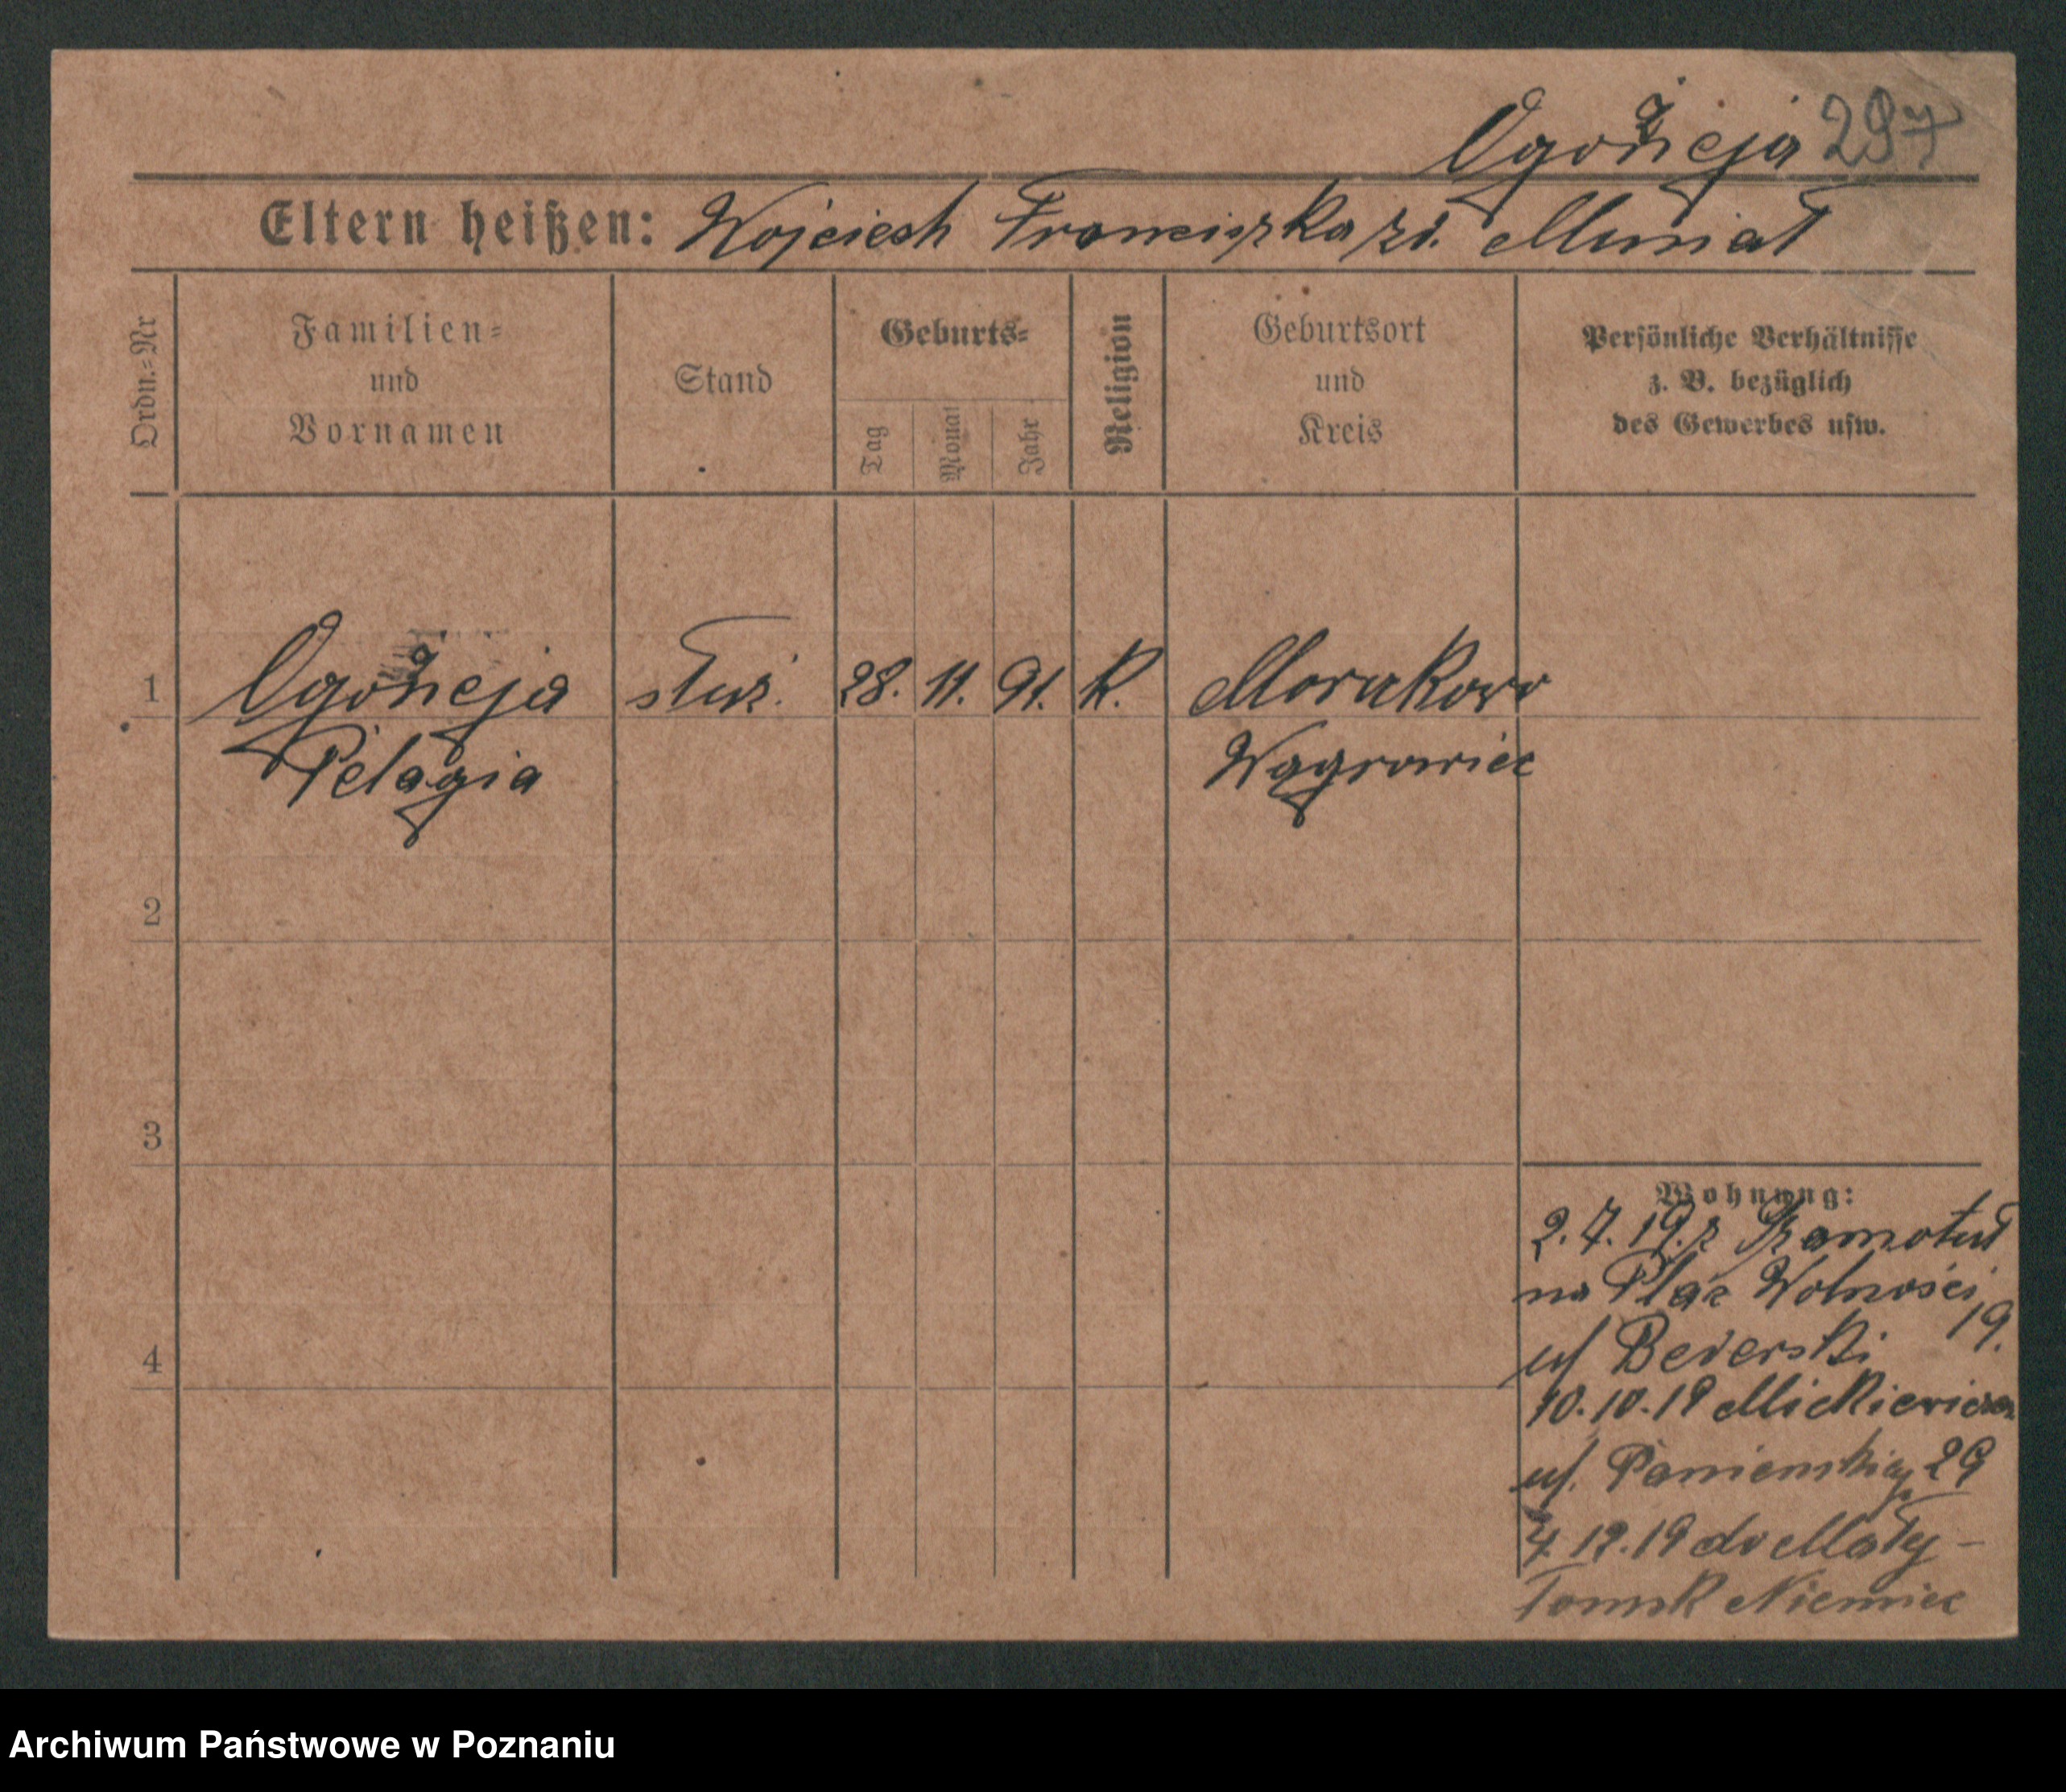 Ogożeja 297
Eltern heißen: Wojciech Franciszka zd. Muniat
Ordn.=Nr
Familien=
und
Vornamen
Stand
Geburts=
Tag
Monat
Jahr
Religion
Geburtsort
und
Kreis
Persönliche Verhältnisse
z. B. bezüglich
des Gewerbes usw.
1 Ogożeja służ. 28. 11. 91. k. Morakowo
Pelagia Wągrowiec
2
3
4
Wohnung:
2. 7. 19. z Szamotuł
na Plac Wolności
19.
u/
10.10.19 Mickiewicza
u/. 29
12.19 do Mały-
Tomsk Niemiec
Archiwum Państwowe w Poznaniu